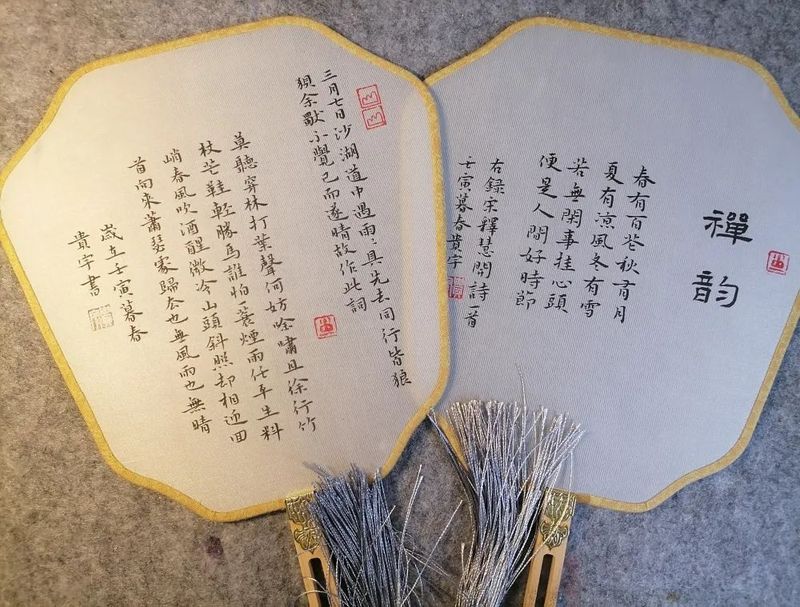 禪韵
春有百花秋有月
夏有凉風冬有雪
若無閑事挂心頭
便是人間好時節
右録宋釋慧開詩一首
壬寅暮春貴宇
三月七日沙湖道中遇雨〻具先去同行皆狼
狽余獨不覺已而遂晴故作此詞
莫聽穿林打葉聲何妨吟嘯且徐行竹
杖芒鞋輕勝馬誰怕一蓑煙雨任平生料
峭春風吹酒醒微冷山頭斜照却相迎回
首向來蕭瑟處歸去也無風雨也無晴
歲在壬寅暮春
貴宇書